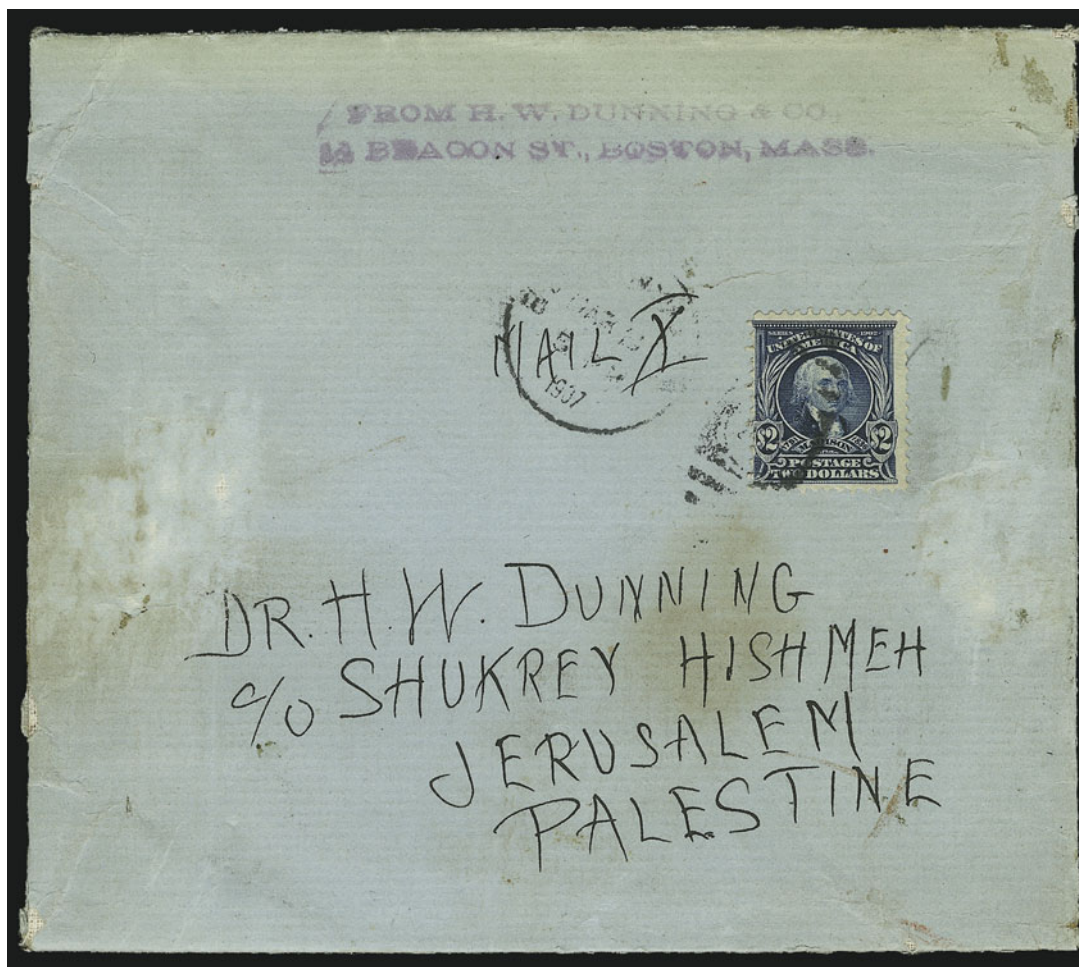 FROM H. W. DUNNING & CO.,
BEACON ST., BOSTON, MASS.
MAIL X.
1907
SERIES 1902
UNITED STATES OF
AMERICA
$2 1751 MADISON 1836 $2
POSTAGE
TWO DOLLARS
DR. H. W. DUNNING
c/o SHUKREY HISHMEH
JERUSALEM
PALESTINE